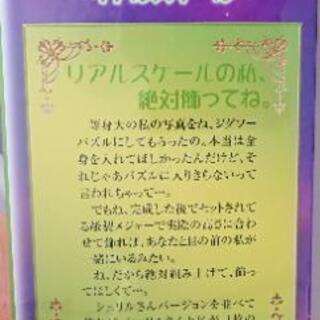 リアルスケールの私、
絶対飾ってね。
等身大の私の写真をね、ジグソー
パズルにしてもらったの。本当は全
身を入れてほしかったんだけど、そ
れじゃあパズルに入りきらないって
言われちゃって…。
でもね、完成した後でセットされて
る
メジャーで実際の高さに合わ
せて飾れば、あなたと目の前の私が
一緒にいるみたい。
ね、だから絶対組み上げて、飾って
ほしくて…。
シェリルさんバージョンを並べて